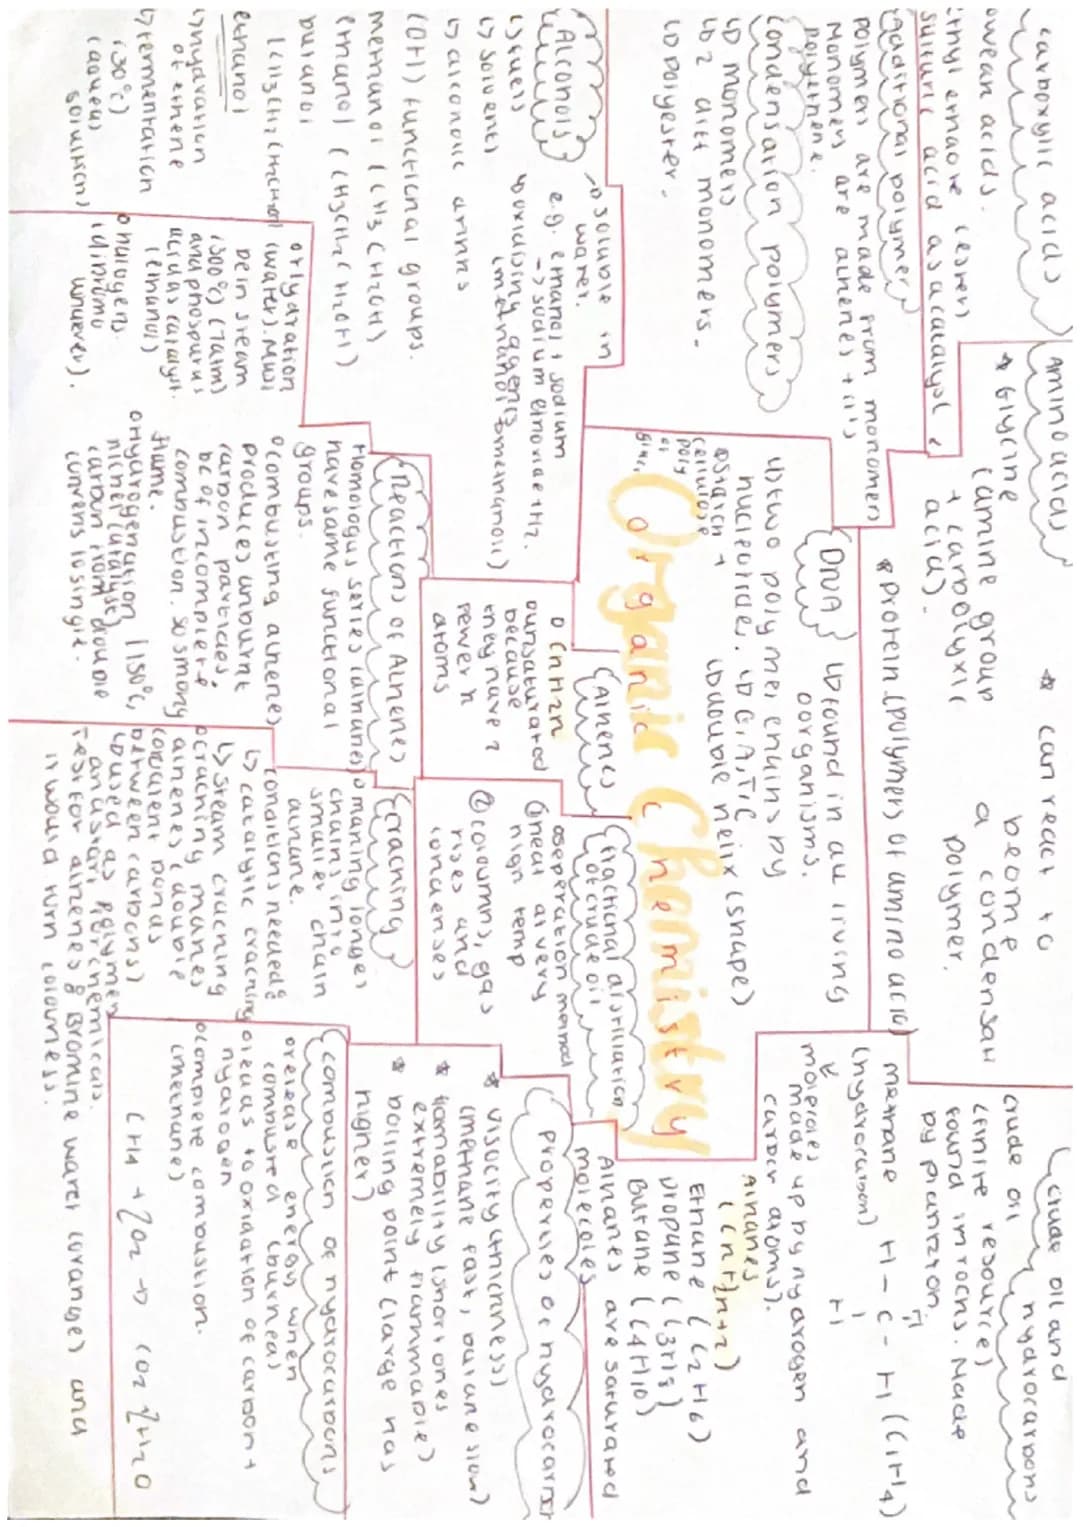 Organic Chemistry
Crude oil and
hydrocarbons
crude oil
(finite resource)
found in rocks. Made
by plankton.
methane H - C - H (CH4)
(hydrocarbon) H
molecoles made up by hydrogen and
carbon atoms).
Alkanes
(CnH2n+2)
Ethane (C2H6)
propane (C3H8)
Butane (C4H10)
Alkanes are saturated
molecoles
properties of hydrocarbon
* viscity (thickness)
(methane fast, butane slow)
* flamability (short ones
extremely flammable)
* boiling point (large has
higher)
combustion of hydrocarbons
o release energy when
combusted (burnea)
o leads to oxidation of carbon +
hydrogen
o complete combustion.
(methane)
CH4 + 2O2 → CO2 2H2O
fractional distillation
of crude oil
o seperation method
① heat at very
high temp
② coloumns, gas
rises and
condenses
Cracking
o making longer
chains into
smaller chain
alkane.
conditions needed:
↳ catalytic cracking
↳ steam cracking
o cracking makes
alkenes (double
covalent bonds
between carbons)
↳ used as polymer
and start, for chemicals.
Test for alkenes: Bromine water (orange) and
it would turn colourless.
Alkenes
o CnH2n
o unsaturated
because
they have 2
fewer H
atoms
Reactions of Alkenes
Homologus series (alkanes)
have same functional
groups.
o combusting alkenes
produces unburnt
carbon particles,
be of incomplete
combustion. so smoky
flame.
o hydrogenation (150°c,
nickel catalyst)
carbon from double
converts to single.
o Hydration
(water). Must
be in steam
(300°c) (70atm)
and phosphorus
acid as catalyst.
(ethanol)
o halogens.
Alcohols
↳ fuels
↳ solvents
↳ alcoholic drinks
→ soluble in
water.
e.g. ethanol + sodium
→ sodium ethoxide + H2.
(OH) functional groups.
methanol (CH3CH2OH)
ethanol (CH3CH2CH2OH)
butanol
ethanol
↳ hydration
of ethene
↳ fermentation
(30°c)
(aqueous
solution)
carboxylic acids
sulfuric acid as a catalyst
additional polymers
polymers are made from monomers
Monomers are alkenes + it's
polythene.
Condensation polymers
↳ monomers
↳ 2 diff monomers.
↳ polyester.
Amino acids
* Glycine
(amine group
+ carbolyxic
acid).
* can react to
beome
a condensat
polymer.
* protein (polymers of amino acid)
DNA
↳ found in all living
o organisms.
↳ two polymer chains by
nucleotides. ↳ G, A, T, C
↳ double helix (shape)
o starch +
cellulose